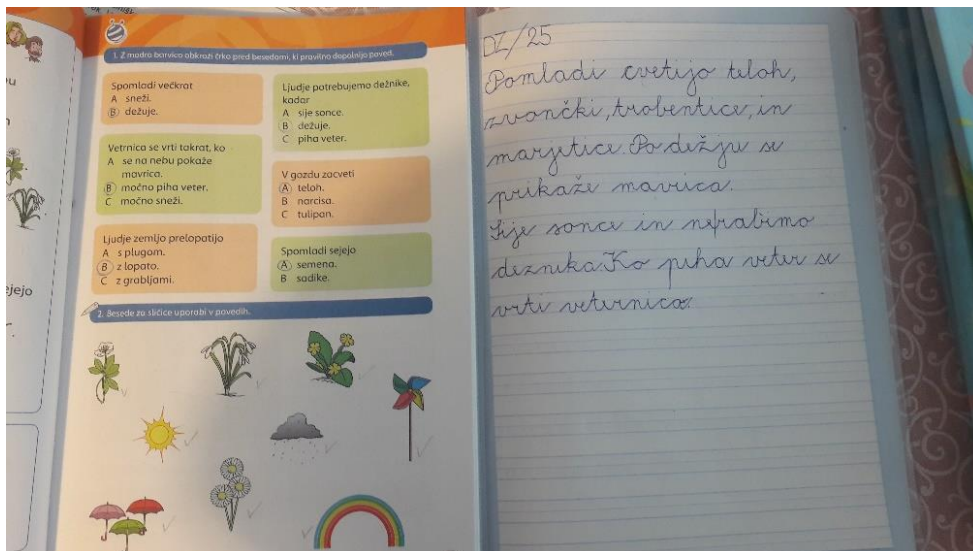 1. Z modro barvico obkroži črko pred besedami, ki pravilno dopolnijo poved.
Spomladi večkrat
A sneži.
B dežuje.
Vetrnica se vrti takrat, ko
A se na nebu pokaže
mavrica.
B močno piha veter.
C močno sneži.
Ljudje zemljo prelopatijo
A s plugom.
B z lopato.
C z grabljami.
Ljudje potrebujemo dežnike,
kadar
A sije sonce.
B dežuje.
C piha veter.
V gozdu zacveti
A teloh.
B narcisa.
C tulipan.
Spomladi sejejo
A semena.
B sadike.
2. Besede za sličice uporabi v povedih.
ejejo
DZ/25
Pomladi cvetijo teloh,
zvončki, trobentice, in
marjetice. Po dežju se
prikaže mavrica.
Sije sonce in ne rabimo
deznika. Ko piha veter se
vrti veternica.